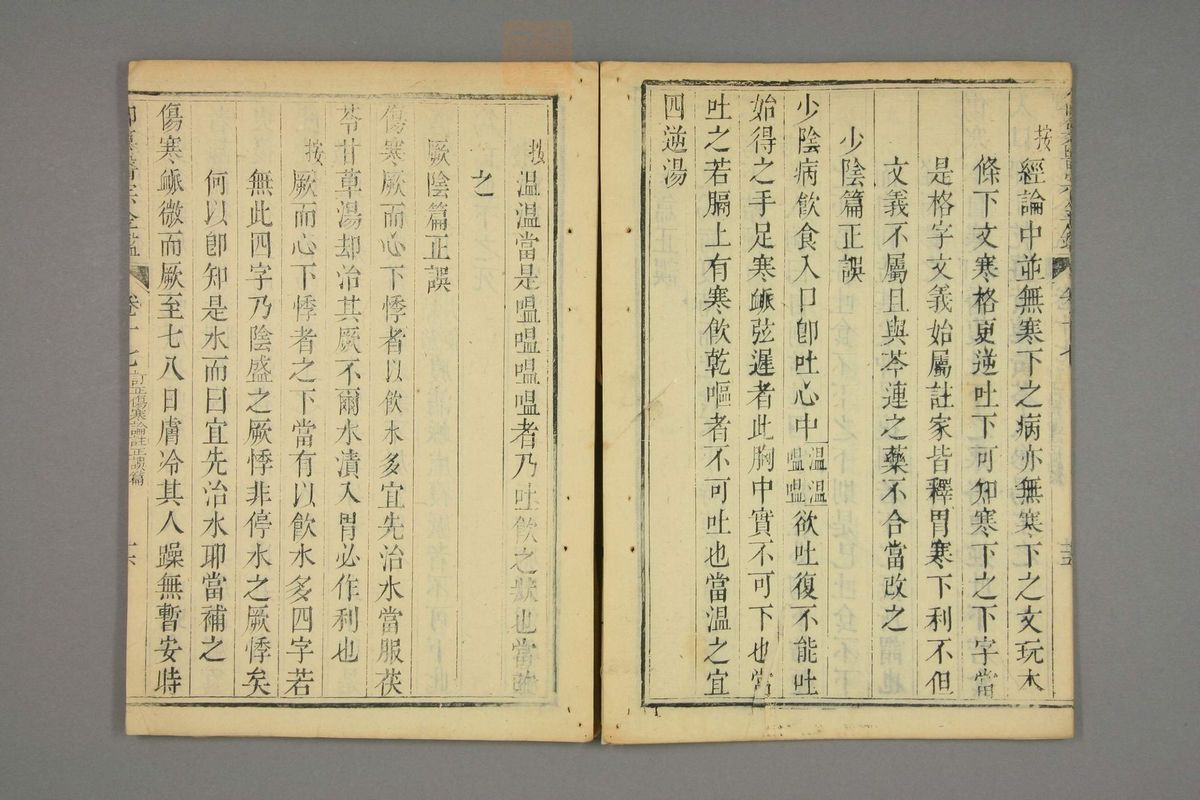 按
經論中並無寒下之病亦無寒下之文玩本
條下文寒格更逆吐下可知寒下之下字當
是格字文義始屬註家皆釋胃寒下利不但
文義不屬且與芩連之藥不合當改之
少陰篇正誤
少陰病飲食入口卽吐心中
溫溫
嗢嗢
欲吐復不能吐
始得之手足寒脈弦遲者此胸中實不可下也當
吐之若膈上有寒飲乾嘔者不可吐也當溫之宜
四逆湯
按
溫溫當是嗢嗢嗢嗢者乃吐飲之狀也當改
之
厥陰篇正誤
傷寒厥而心下悸者以飲水多宜先治水當服茯
苓甘草湯却治其厥不爾水漬入胃必作利也
按
厥而心下悸者之下當有以飲水多四字若
無此四字乃陰盛之厥悸非停水之厥悸矣
何以卽知是水而曰宜先治水耶當補之
傷寒脈微而厥至七八日膚冷其人躁無暫安時
卷十七
訂正傷寒論註正誤篇